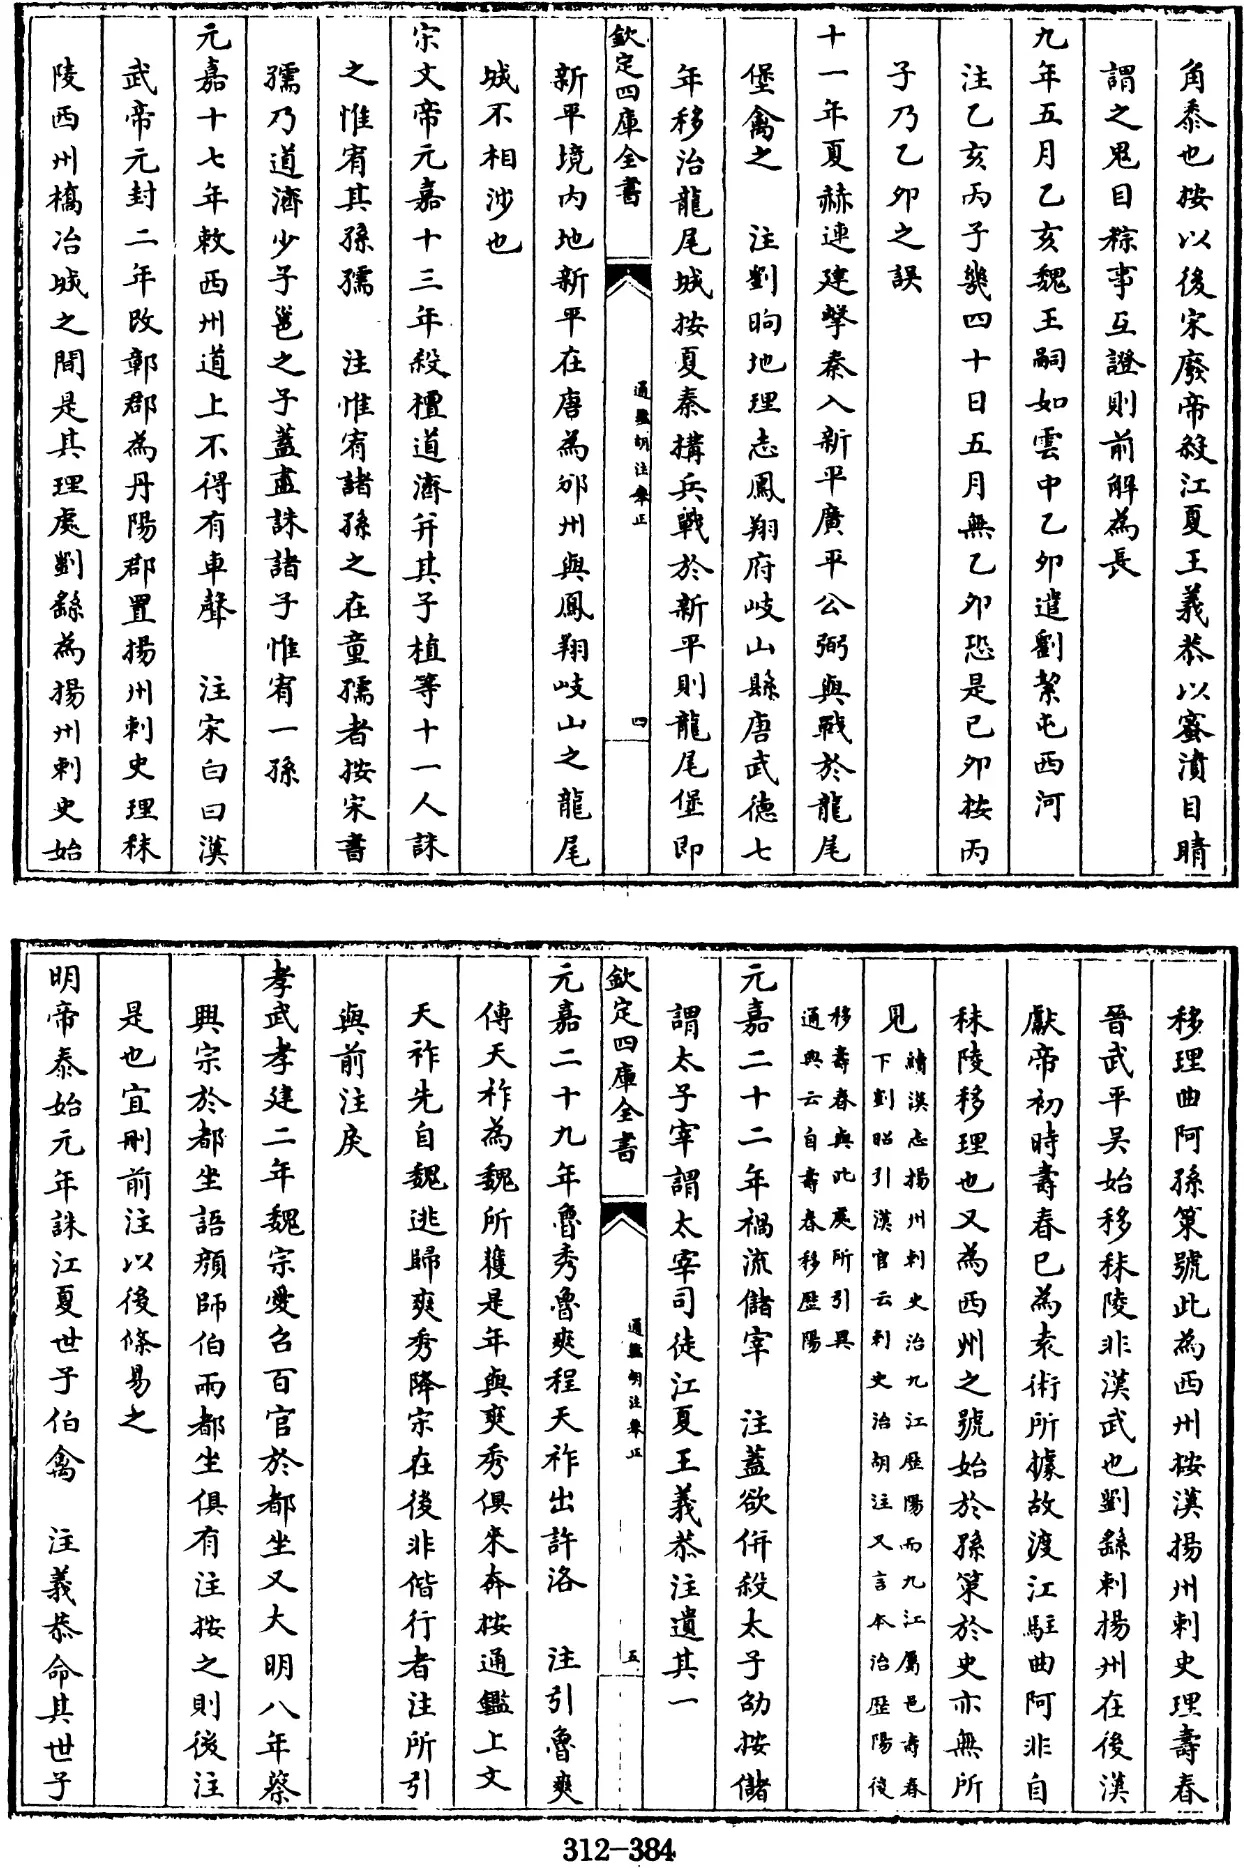 角黍也按以後宋廢帝殺江夏王義恭以蜜漬目睛
謂之鬼目粽事互證則前解為長
九年五月乙亥魏王嗣如雲中乙卯遣劉絜屯西河
注乙亥丙子幾四十日五月無乙卯恐是己卯按丙
子乃乙卯之誤
十一年夏赫連建擊秦入新平廣平公弼與戰於龍尾
堡禽之　注劉昫地理志鳳翔府岐山縣唐武德七
年移治龍尾城按夏秦構兵戰於新平則龍尾堡即
欽定四庫全書
通鑑胡注舉正
四
新平境内地新平在唐為邠州與鳳翔岐山之龍尾
城不相涉也
宋文帝元嘉十三年殺檀道濟并其子植等十一人誅
之惟宥其孫孺　注惟宥諸孫之在童孺者按宋書
孺乃道濟少子邕之子蓋盡誅諸子惟宥一孫
元嘉十七年敕西州道上不得有車聲　注宋白曰漢
武帝元封二年改鄣郡為丹陽郡置揚州刺史理秣
陵西州橋冶城之間是其理處劉繇為揚州刺史始
移理曲阿孫策號此為西州按漢揚州刺史理壽春
晉武平吴始移秣陵非漢武也劉繇刺揚州在後漢
獻帝初時壽春已為袁術所據故渡江駐曲阿非自
秣陵移理也又為西州之號始於孫策於史亦無所
見
續漢志揚州刺史治九江歷陽而九江屬邑壽春
下劉昭引漢官云刺史治胡注又言本治歷陽後
移壽春與此戾所引異
通典云自壽春移歷陽
元嘉二十二年禍流儲宰　注蓋欲併殺太子劭按儲
謂太子宰謂太宰司徒江夏王義恭注遺其一
欽定四庫全書
通鑑胡注舉正
五
元嘉二十九年魯秀魯爽程天祚出許洛　注引魯爽
傳天祚為魏所獲是年與爽秀俱來奔按通鑑上文
天祚先自魏逃歸爽秀降宋在後非偕行者注所引
與前注戾
孝武孝建二年魏宗愛召百官於都坐又大明八年蔡
興宗於都坐語顔師伯兩都坐俱有注按之則後注
是也宜刪前注以後條易之
明帝泰始元年誅江夏世子伯禽　注義恭命其世子
312-384